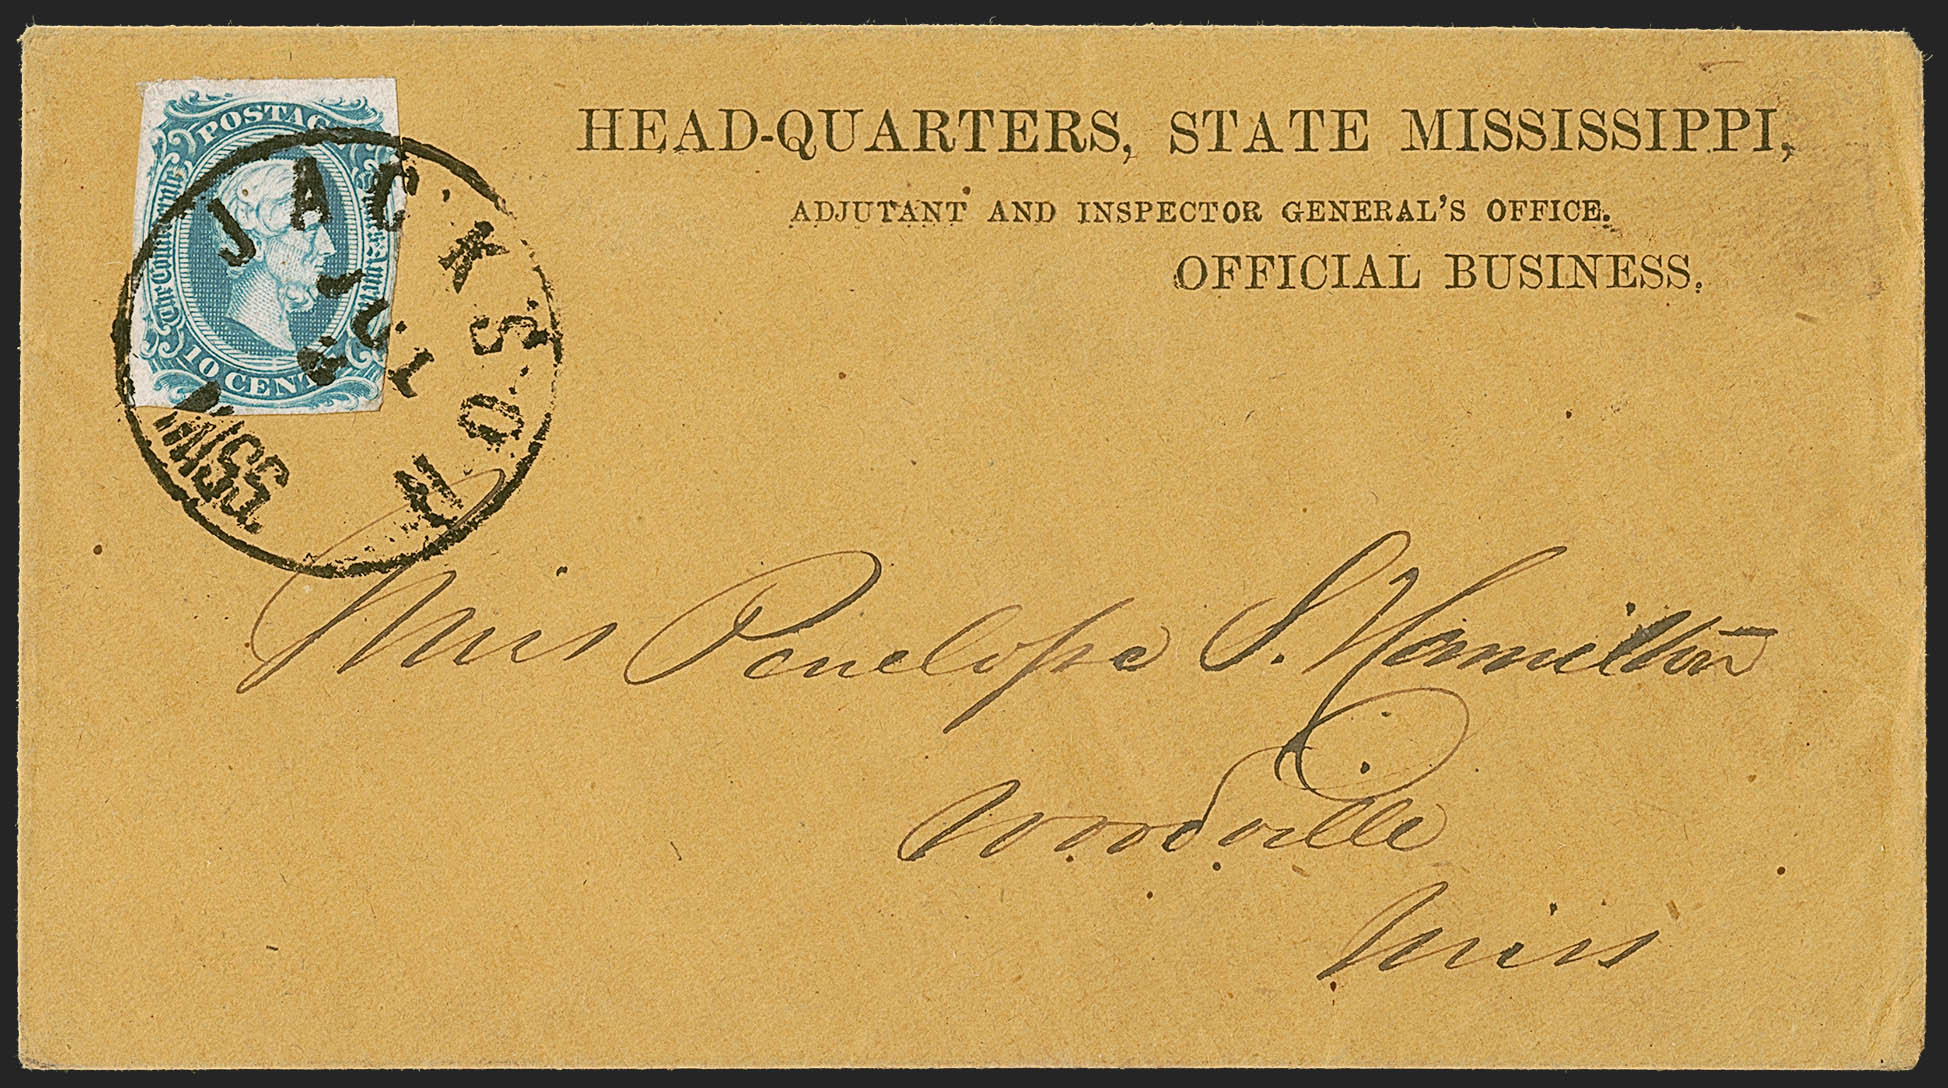 HEAD-QUARTERS, STATE MISSISSIPPI,
ADJUTANT AND INSPECTOR GENERAL'S OFFICE.
OFFICIAL BUSINESS.
POSTAG
The Confederate
10 CENT
JACKSON
MISS.
JUL
Miss Penelope S. Hamilton
Woodville
Miss